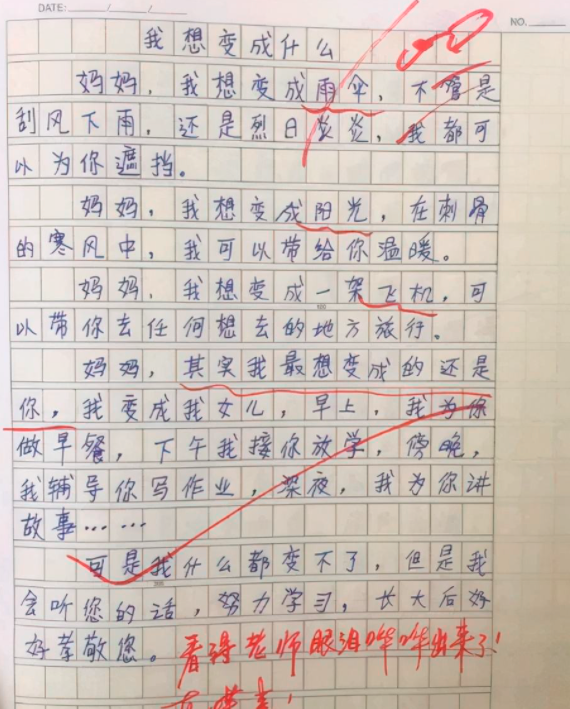 DATE: / /
NO.
100
我想变成什么
妈妈，我想变成雨伞，不管是
刮风下雨，还是烈日炎炎，我都可
以为你遮挡。
妈妈，我想变成阳光，在刺骨
的寒风中，我可以带给你温暖。
妈妈，我想变成一架飞机，可
以带你去任何想去的地方旅行。
妈妈，其实我最想变成的还是
你，我变成我女儿，早上，我为你
做早餐，下午我接你放学，傍晚，
我辅导你写作业，深夜，我为你讲
故事……
可是我什么都变不了，但是我
会听您的话，努力学习，长大后好
好孝敬您。看得老师眼泪哗哗出来了！